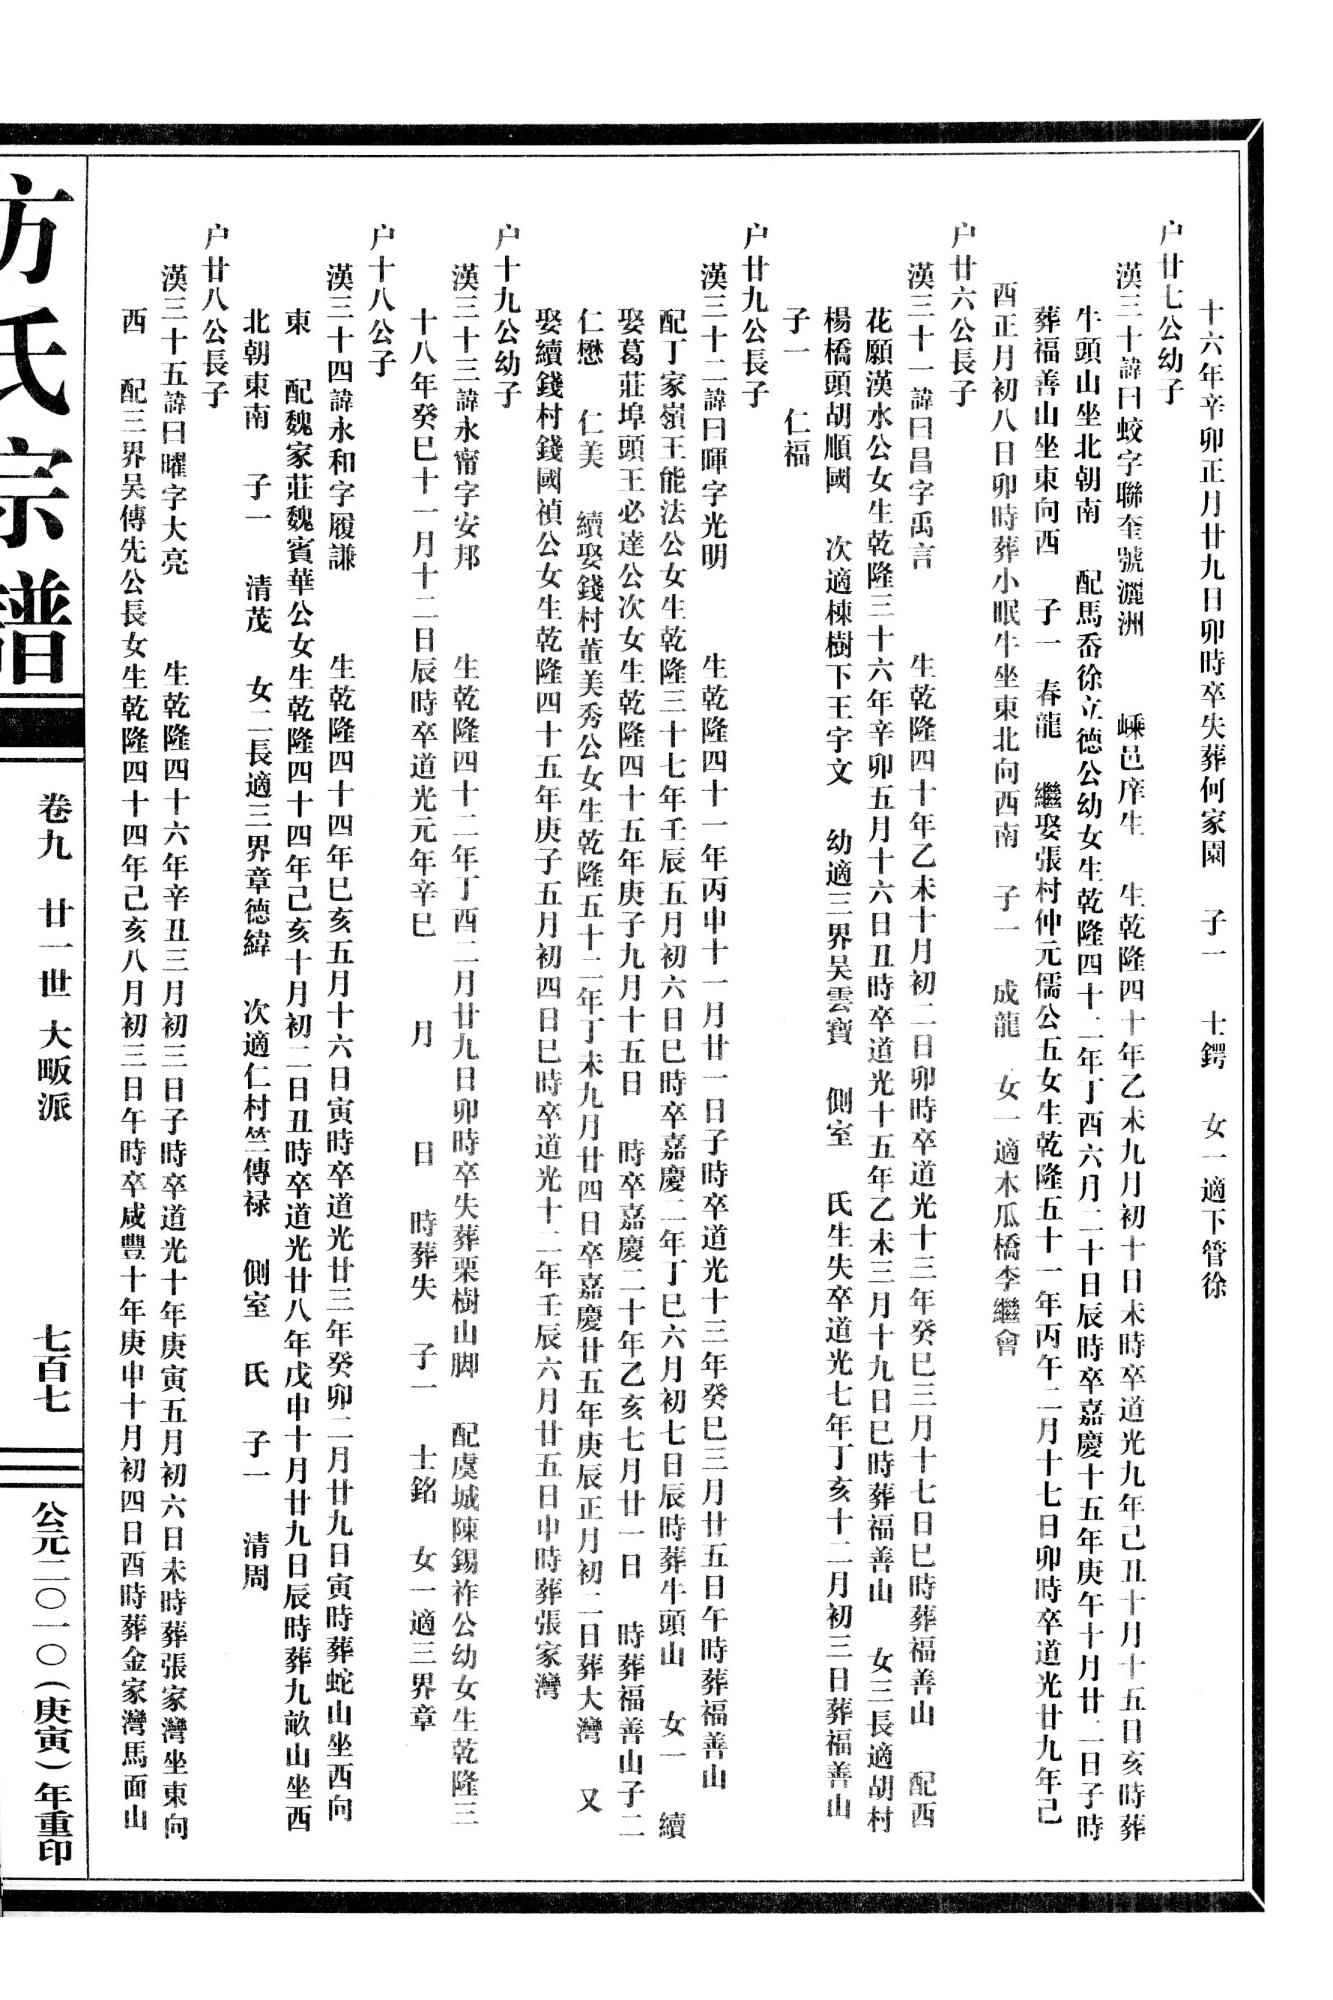 十六年辛卯正月廿九日卯時卒失葬何家園　子一　士鍔　女一適下管徐
户廿七公幼子
漢三十諱曰蛟字聯奎號灑洲　嵊邑庠生　生乾隆四十年乙未九月初十日未時卒道光九年己丑十月十五日亥時葬
牛頭山坐北朝南　配馬岙徐立德公幼女生乾隆四十二年丁酉六月二十日辰時卒嘉慶十五年庚午十月廿二日子時
葬福善山坐東向西　子一　春龍　繼娶張村仲元儒公五女生乾隆五十一年丙午二月十七日卯時卒道光廿九年己
酉正月初八日卯時葬小眠牛坐東北向西南　子一　成龍　女一適木瓜橋李繼會
户廿六公長子
漢三十一諱曰昌字禹言　生乾隆四十年乙未十月初二日卯時卒道光十三年癸巳三月十七日巳時葬福善山　配西
花願漢水公女生乾隆三十六年辛卯五月十六日丑時卒道光十五年乙未三月十九日巳時葬福善山　女三長適胡村
楊橋頭胡順國　次適楝樹下王宇文　幼適三界吴雲寶　側室　氏生失卒道光七年丁亥十二月初三日葬福善山
子一　仁福
户廿九公長子
漢三十二諱曰暉字光明　生乾隆四十一年丙申十一月廿一日子時卒道光十三年癸巳三月廿五日午時葬福善山
配丁家嶺王能法公女生乾隆三十七年壬辰五月初六日巳時卒嘉慶二年丁巳六月初七日辰時葬牛頭山　女一　續
娶葛莊埠頭王必達公次女生乾隆四十五年庚子九月十五日　時卒嘉慶二十年乙亥七月廿一日　時葬福善山子二
仁懋　仁美　續娶錢村董美秀公女生乾隆五十二年丁未九月廿四日卒嘉慶廿五年庚辰正月初二日葬大灣　又
娶續錢村錢國禎公女生乾隆四十五年庚子五月初四日巳時卒道光十二年壬辰六月廿五日申時葬張家灣
户十九公幼子
漢三十三諱永甯字安邦　生乾隆四十二年丁酉二月廿九日卯時卒失葬栗樹山脚　配虞城陳錫祚公幼女生乾隆三
十八年癸巳十一月十二日辰時卒道光元年辛巳　月　日　時葬失　子一　士銘　女一適三界章
户十八公子
漢三十四諱永和字履謙　生乾隆四十四年巳亥五月十六日寅時卒道光廿三年癸卯二月廿九日寅時葬蛇山坐西向
東　配魏家莊魏賓華公女生乾隆四十四年己亥十月初二日丑時卒道光廿八年戊申十月廿九日辰時葬九畝山坐西
北朝東南　子一　清茂　女二長適三界章德緯　次適仁村竺傳禄　側室　氏　子一　清周
户廿八公長子
漢三十五諱曰曜字大亮　生乾隆四十六年辛丑三月初三日子時卒道光十年庚寅五月初六日未時葬張家灣坐東向
西　配三界吴傳先公長女生乾隆四十四年己亥八月初三日午時卒咸豐十年庚申十月初四日酉時葬金家灣馬面山
方氏宗譜
卷九　廿一世　大畈派
七百七
公元二〇一〇（庚寅）年重印